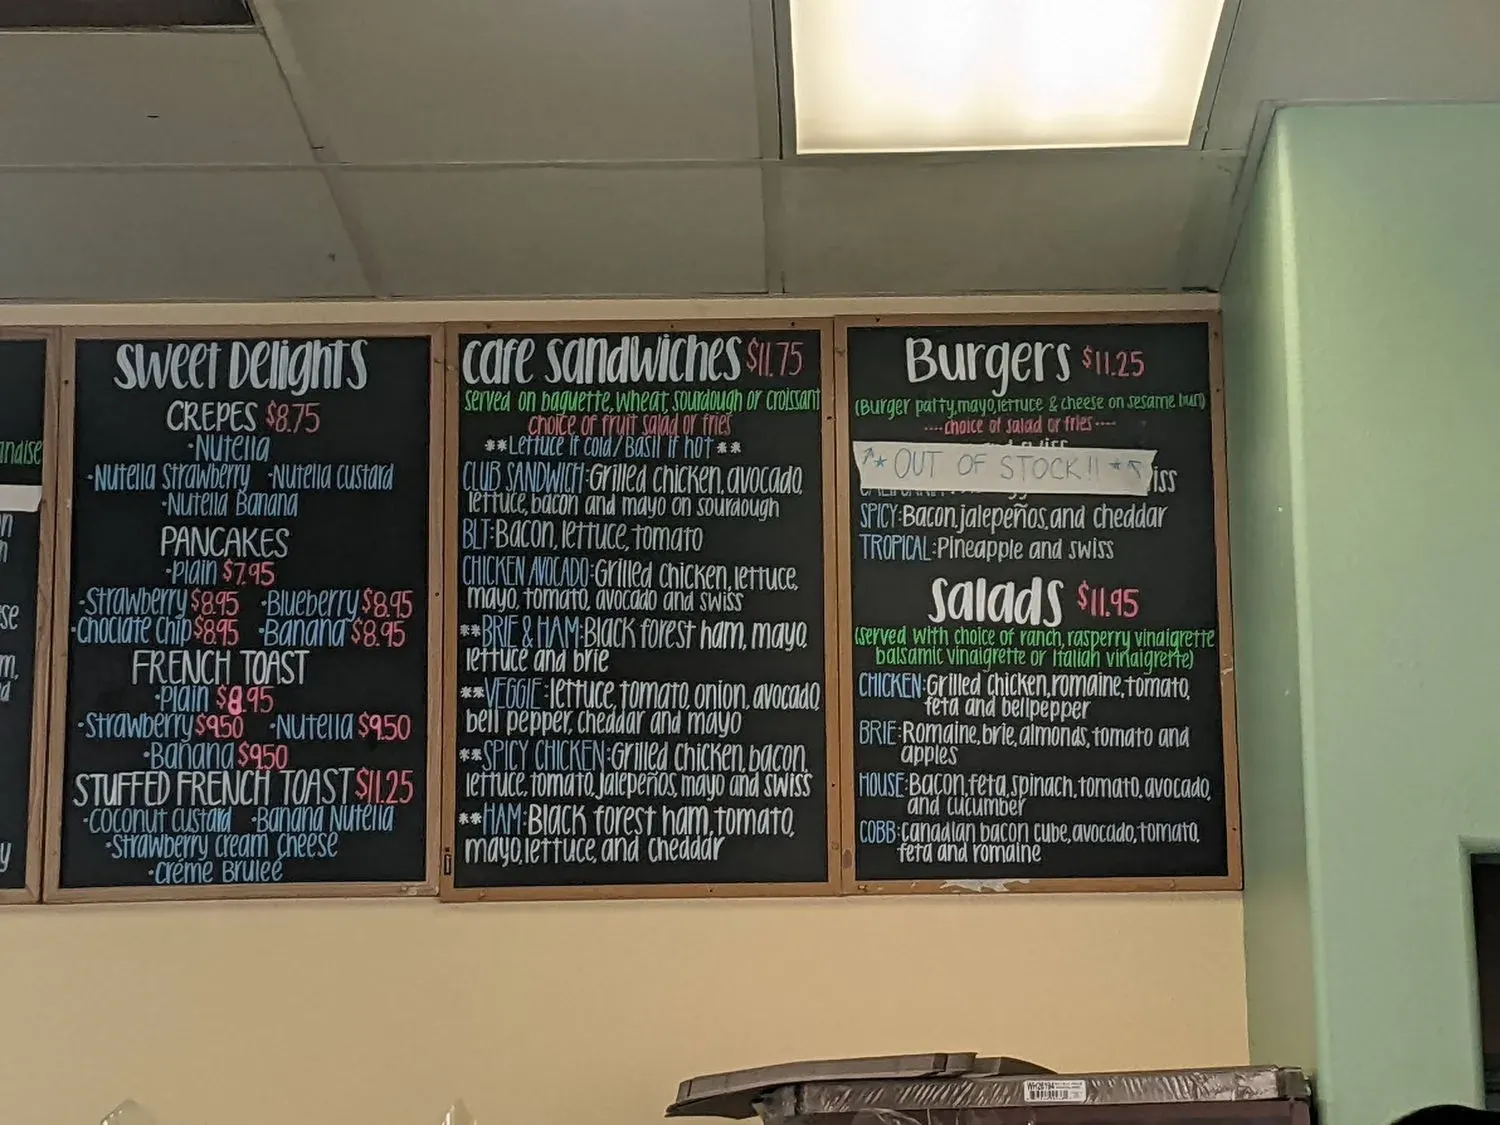 andise
Sweet Delights
CREPES $8.75
·Nutella
·Nutella Strawberry ·Nutella custard
·Nutella Banana
PANCAKES
·Plain $7.95
·Strawberry $8.95 ·Blueberry $8.95
·Choclate Chip $8.95 ·Banana $8.95
FRENCH TOAST
·Plain $8.95
·Strawberry $9.50 ·Nutella $9.50
·Banana $9.50
STUFFED FRENCH TOAST $11.25
·Coconut Custard ·Banana Nutella
·Strawberry cream cheese
·Créme Brulee
Cafe Sandwiches $11.75
served on baguette, wheat, sourdough or croissant
choice of fruit salad or fries
**Lettuce if cold/Basil if hot**
CLUB SANDWICH: Grilled chicken, avocado,
lettuce, bacon and mayo on sourdough
BLT: Bacon, lettuce, tomato
CHICKEN AVOCADO: Grilled chicken, lettuce,
mayo, tomato, avocado and swiss
**BRIE & HAM: Black forest ham, mayo,
lettuce and brie
**VEGGIE: lettuce, tomato, onion, avocado,
bell pepper, cheddar and mayo
**SPICY CHICKEN: Grilled chicken, bacon,
lettuce, tomato, jalepeños, mayo and swiss
**HAM: Black forest ham, tomato,
mayo, lettuce, and cheddar
Burgers $11.25
(Burger patty, mayo, lettuce & cheese on sesame bun)
----choice of salad or fries----
* OUT OF STOCK!! **
iss
SPICY: Bacon, jalepeños, and cheddar
TROPICAL: Pineapple and swiss
Salads $11.95
(served with choice of ranch, rasperry vinaigrette
balsamic vinaigrette or Italian vinaigrette)
CHICKEN: Grilled chicken, romaine, tomato,
feta and bellpepper
BRIE: Romaine, brie, almonds, tomato and
apples
HOUSE: Bacon, feta, spinach, tomato, avocado,
and cucumber
COBB: Canadian bacon cube, avocado, tomato,
feta and romaine
WH26194